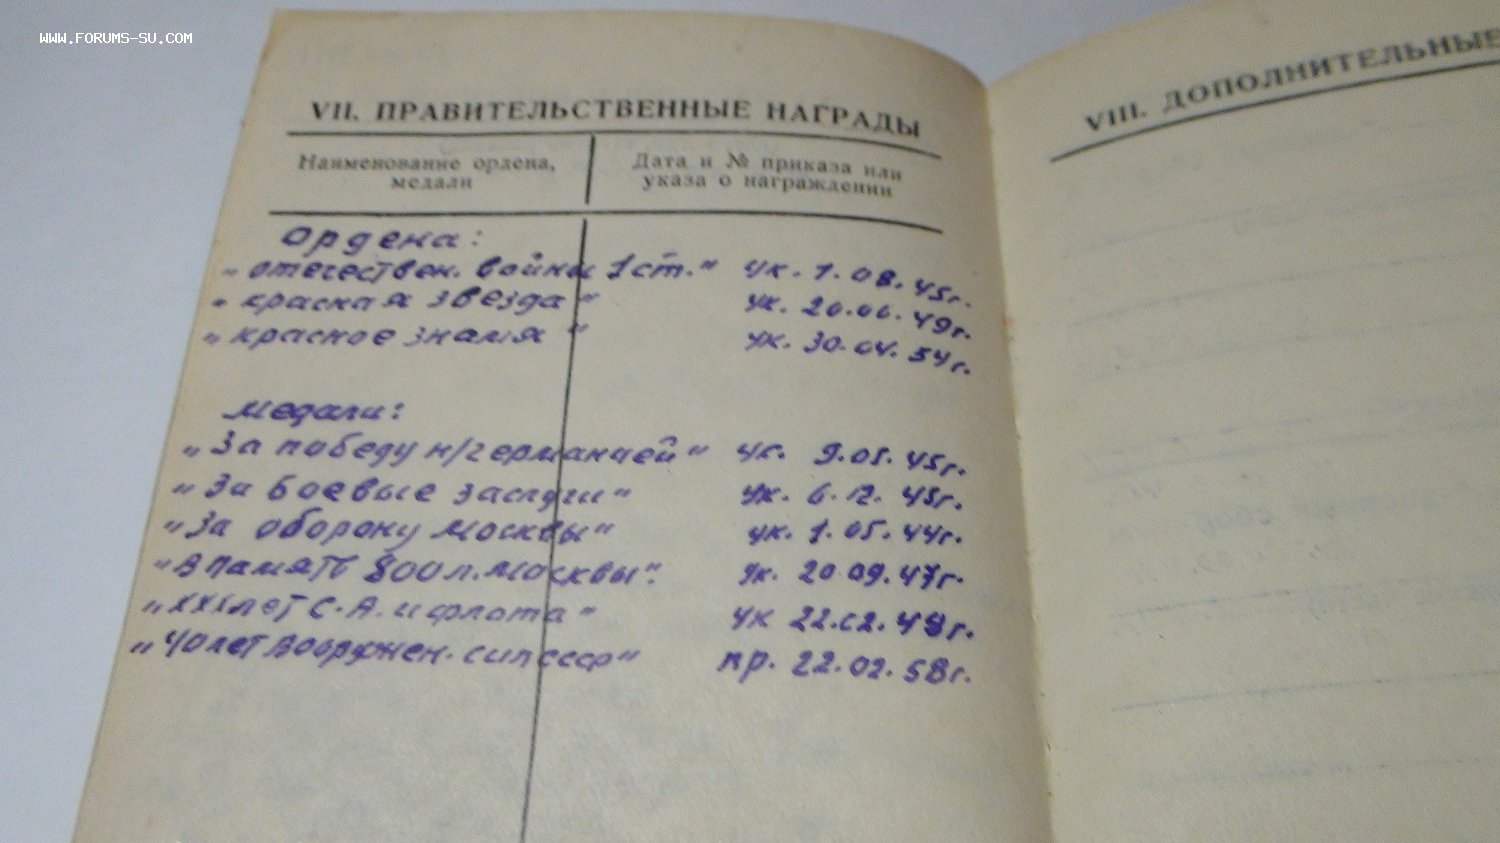 WWW.FORUMS-SU.COM
VII. ПРАВИТЕЛЬСТВЕННЫЕ НАГРАДЫ
Наименование ордена, медали
Дата и № приказа или указа о награждении
Ордена:
„отечествен. войны 1 ст.“ ук. 1.08.45г.
„красная звезда“ ук. 20.06.49г.
„красное знамя“ ук. 30.04.54г.
медали:
„За победу н/германией“ ук. 9.05.45г.
„За боевые заслуги“ ук. 6.12.45г.
„За оборону Москвы“ ук. 1.05.44г.
„В память 800 л. Москвы“. ук. 20.09.47г.
„XXX лет С.А. и флота“ ук 22.02.48г.
„40 лет вооружен. сил ссср“ пр. 22.02.58г.
VIII. ДОПОЛНИТЕЛЬНЫЕ